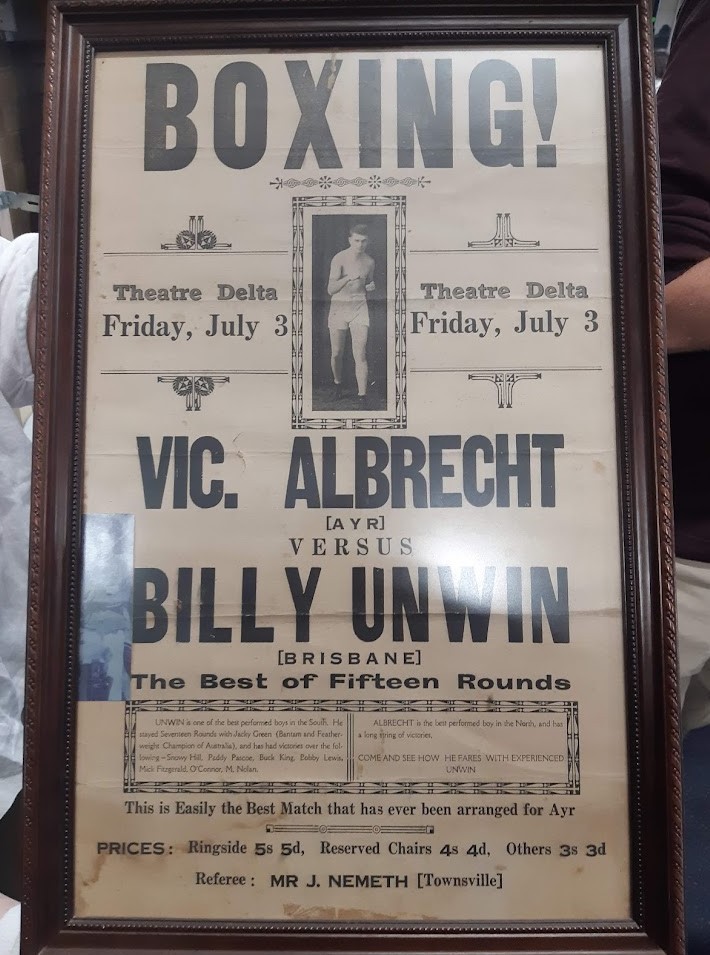 BOXING!
Theatre Delta
Friday, July 3
Theatre Delta
Friday, July 3
VIC. ALBRECHT
[AYR]
VERSUS
BILLY UNWIN
[BRISBANE]
The Best of Fifteen Rounds
UNWIN is one of the best performed boys in the South. He
stayed Seventeen Rounds with Jacky Green (Bantam and Feather-
weight Champion of Australia), and has had victories over the fol-
lowing—Snowy Hill, Paddy Pascoe, Buck King, Bobby Lewis,
Mick Fitzgerald, O'Connor, M. Nolan.
ALBRECHT is the best performed boy in the North, and has
a long string of victories.
COME AND SEE HOW HE FARES WITH EXPERIENCED
UNWIN
This is Easily the Best Match that has ever been arranged for Ayr
PRICES: Ringside 5s 5d, Reserved Chairs 4s 4d, Others 3s 3d
Referee: MR J. NEMETH [Townsville]